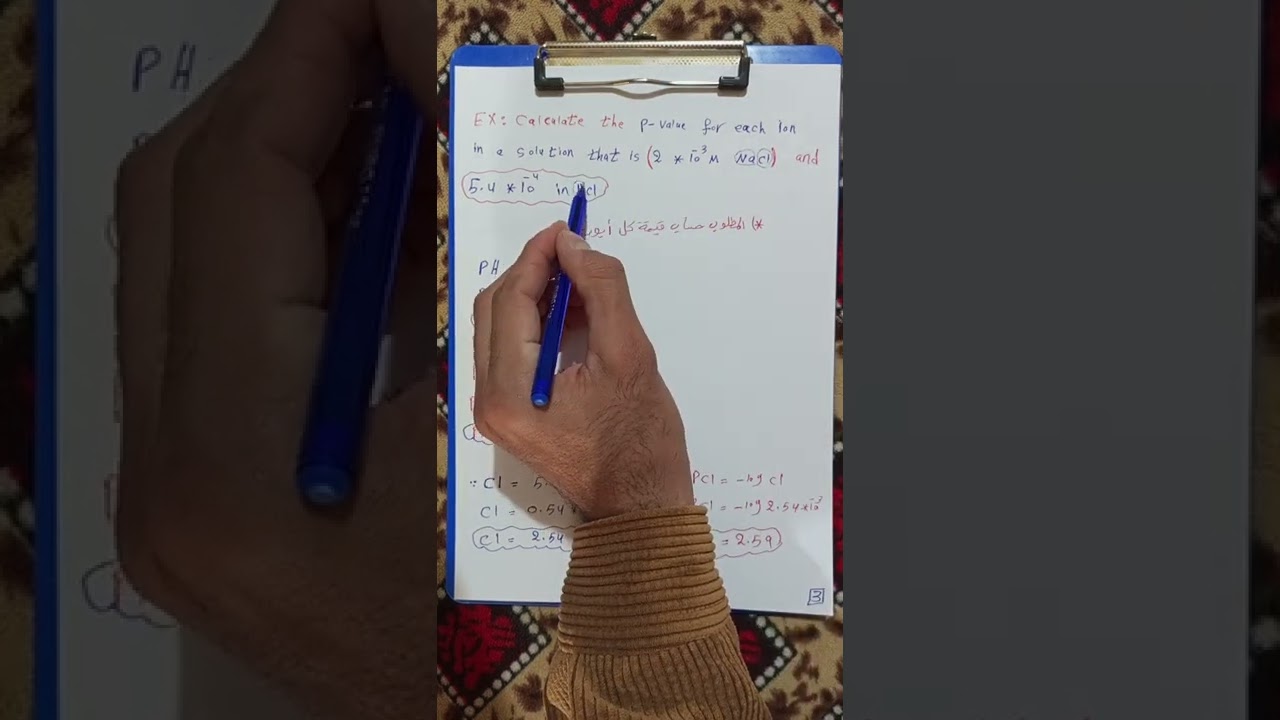 EX: Calculate the P-value for each Ion
in a solution that is (2 * 10⁻³ M NaCl) and
5.4 * 10⁻⁴ in HCl
*) المطلوب حساب قيمة كل أيون
PH
∵ Cl = 5. PCl = -log Cl
Cl = 0.54 Cl = -log 2.54*10⁻³
Cl = 2.54 = 2.59
3